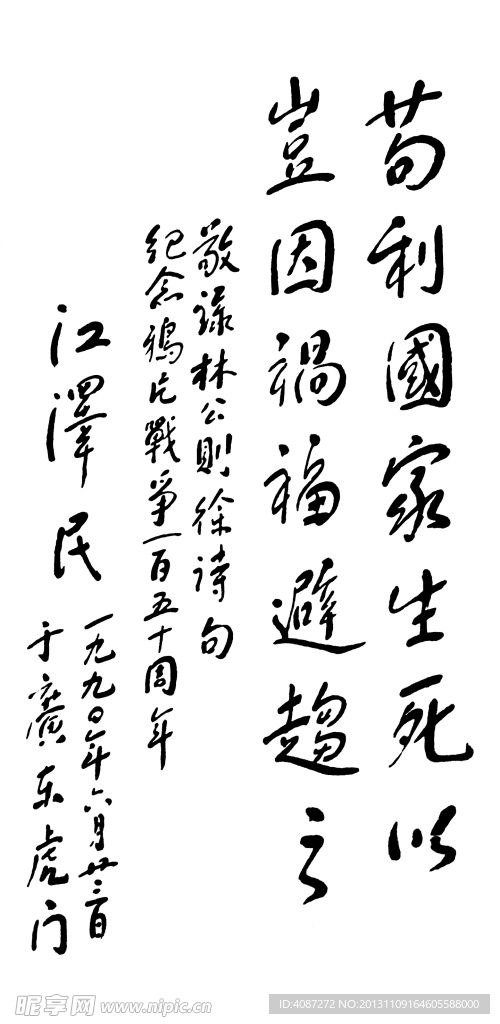 苟利國家生死以
豈因禍福避趨之
敬录林公則徐诗句
纪念鴉片戰爭一百五十周年
江澤民
一九九〇年六月廿三日
于廣东虎门
昵享网 www.nipic.cn
ID:4087272 NO:20131109164605588000